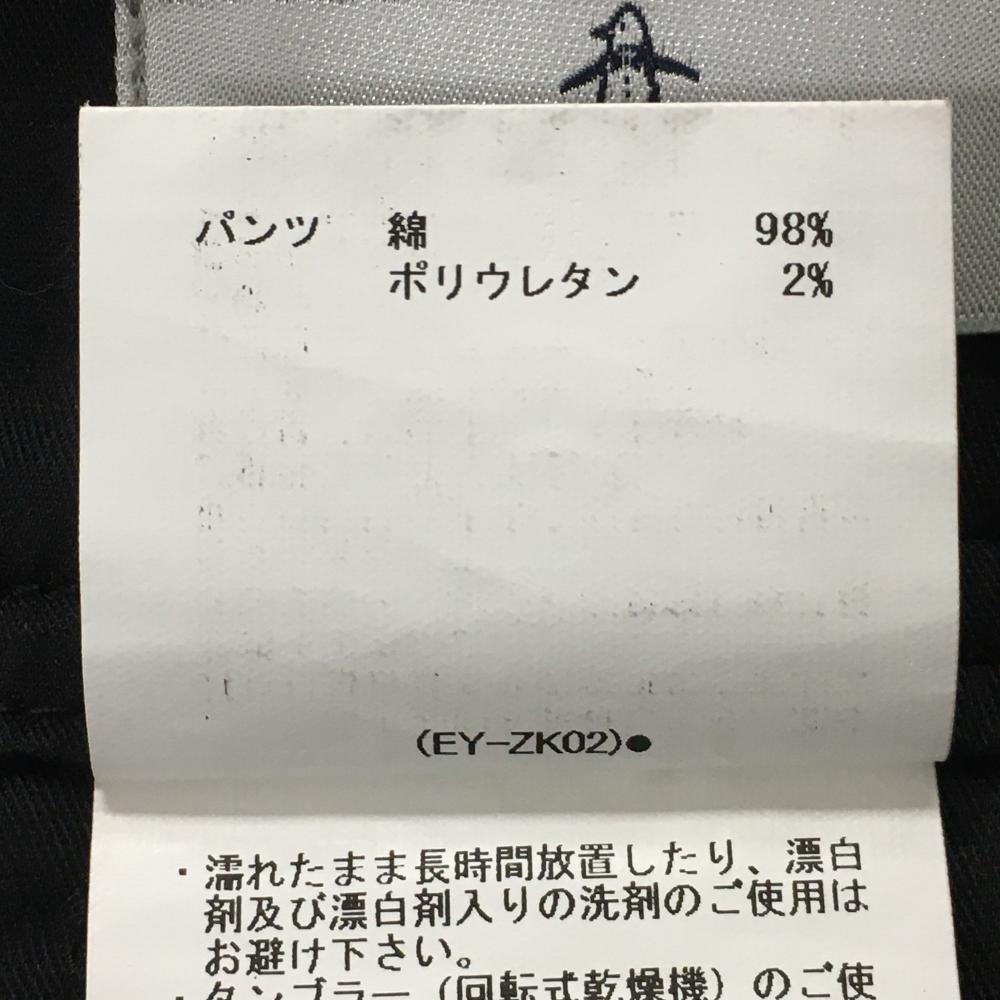 パンツ 綿 98%
ポリウレタン 2%
(EY-ZK02)●
・濡れたまま長時間放置したり、漂白
剤及び漂白剤入りの洗剤のご使用は
お避け下さい。
・タンブラー（回転式乾燥機）のご使